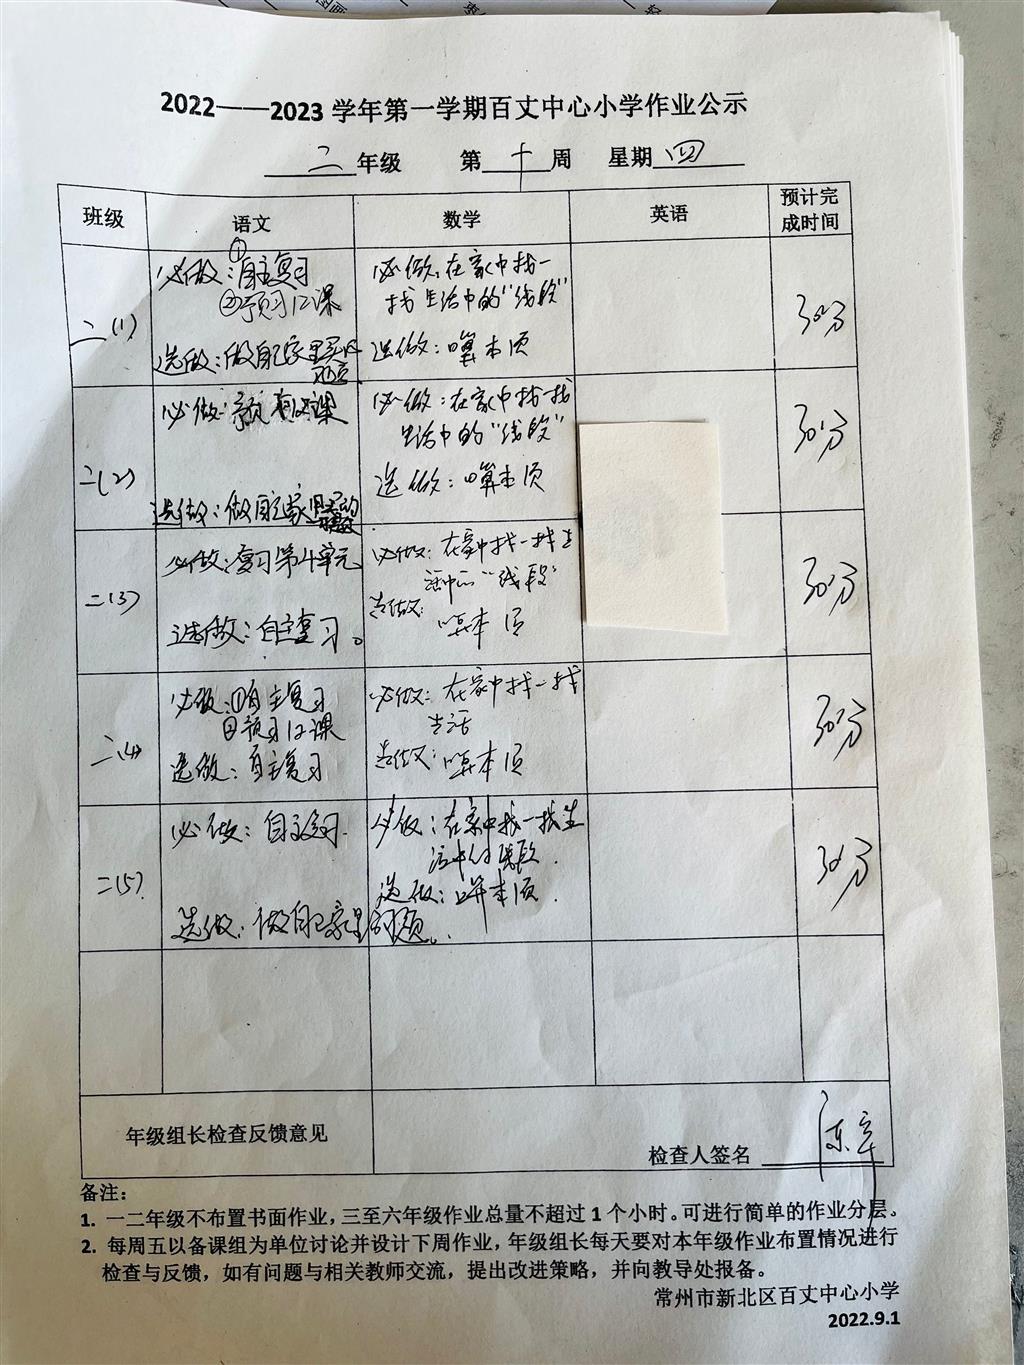 2022——2023学年第一学期百丈中心小学作业公示
二年级 第十周 星期四
班级 语文 数学 英语 预计完成时间
二(1)
必做：①自主复习
②预习12课
选做：做自己家里买的
必做：在家中找一
找生活中的“线段”
选做：口算本1页
30分
二(2)
必做：预习12课
选做：做自己家里买的
必做：在家中找一找
生活中的“线段”
选做：口算本1页
30分
二(3)
必做：复习第4单元
选做：自主复习。
必做：在家中找一找生
活中的“线段”
选做：
口算本1页
30分
二(4)
必做：①自主复习
②预习12课
选做：自主复习
必做：在家中找一找
生活
选做：口算本1页
30分
二(5)
必做：自主复习.
选做：做自己家里的题。
必做：在家中找一找生
活中的线段.
选做：口算本1页.
30分
年级组长检查反馈意见
检查人签名
备注：
1. 一二年级不布置书面作业，三至六年级作业总量不超过1个小时。可进行简单的作业分层。
2. 每周五以备课组为单位讨论并设计下周作业，年级组长每天要对本年级作业布置情况进行
检查与反馈，如有问题与相关教师交流，提出改进策略，并向教导处报备。
常州市新北区百丈中心小学
2022.9.1